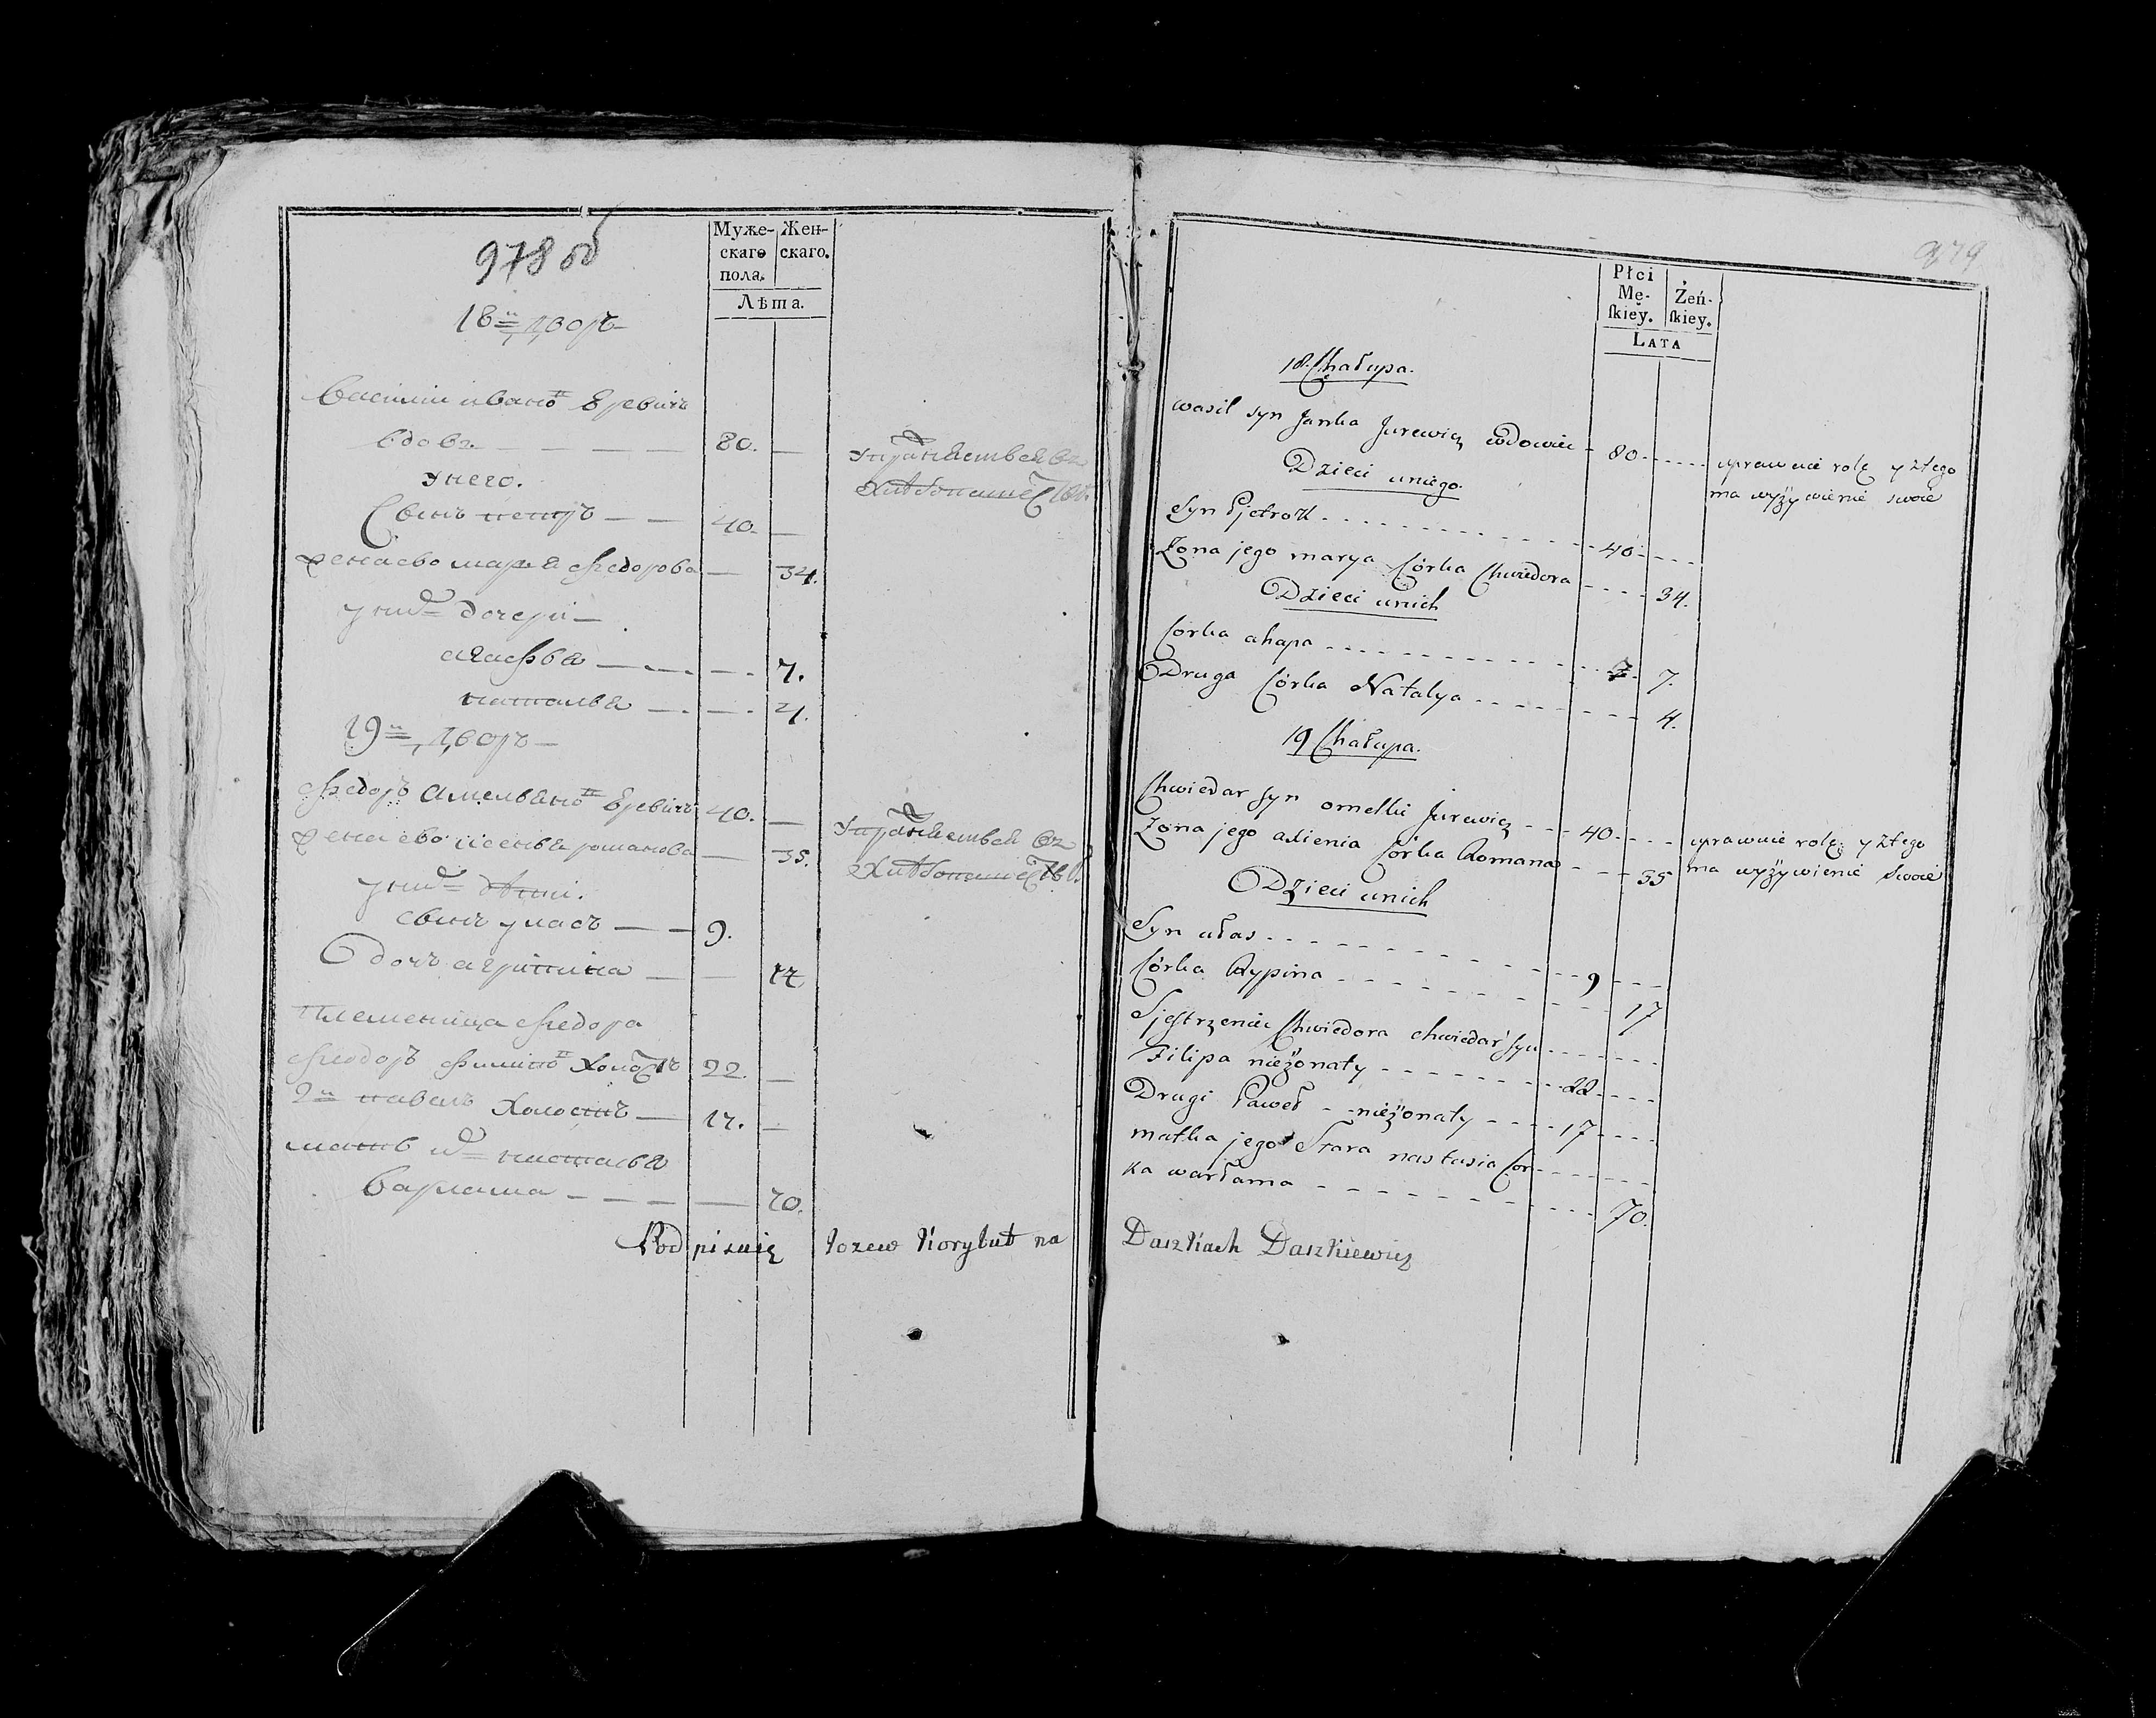 978 об
Муже-
скаго
пола.
Жен-
скаго.
Лѣта.
18й дворъ
Василий Иванов Юревичъ
вдовъ 80.
упражняется въ
хлѣбопашествѣ
У него.
Сынъ Петръ 40.
Жена ево Марья Федорова 34.
у них дочери
Агафья 7.
Наталья 4.
19й дворъ
Федоръ Амельянов Юревичъ 40.
упражняется въ
хлѣбопашествѣ
Жена ево Ксенья Романова 35.
у них дѣти.
Сынъ Уласъ 9.
Дочь Агрипина 17
Племеница Федора
Федоръ Филипов холостъ 22.
2й Павелъ холостъ 17.
мать их Настасья
Варлама 70.
Podpisuię Iozew Korybut na Daszkach Daszkiewicz
979
Płci
Mę-
ſkiey.
Żeń-
ſkiey.
LATA
18. Chałupa.
Wasil syn Janka Jurewicz wdowiec 80
uprawuie rolę y ztego
ma wyżywienie swoie
Dzieci uniego.
Syn Pjotrok 40
Zona jego marya Córka Chwiedora 34.
Dzieci unich
Córka ahapa 7.
Druga Córka Natalya 4.
19 Chałupa.
Chwiedar syn omelki Jurewicz 40
uprawuie rolę y ztego
ma wyżywienie swoie
Zona jego axienia Córka Romana 35
Dzieci unich
Syn ułas 9
Córka Rypina 17
Sjestrzeniec Chwiedora chwiedar syn
Filipa nieżonaty 22
Drugi Paweł nieżonaty 17
matka jego Stara nastasia Cor
ka warłama 70.